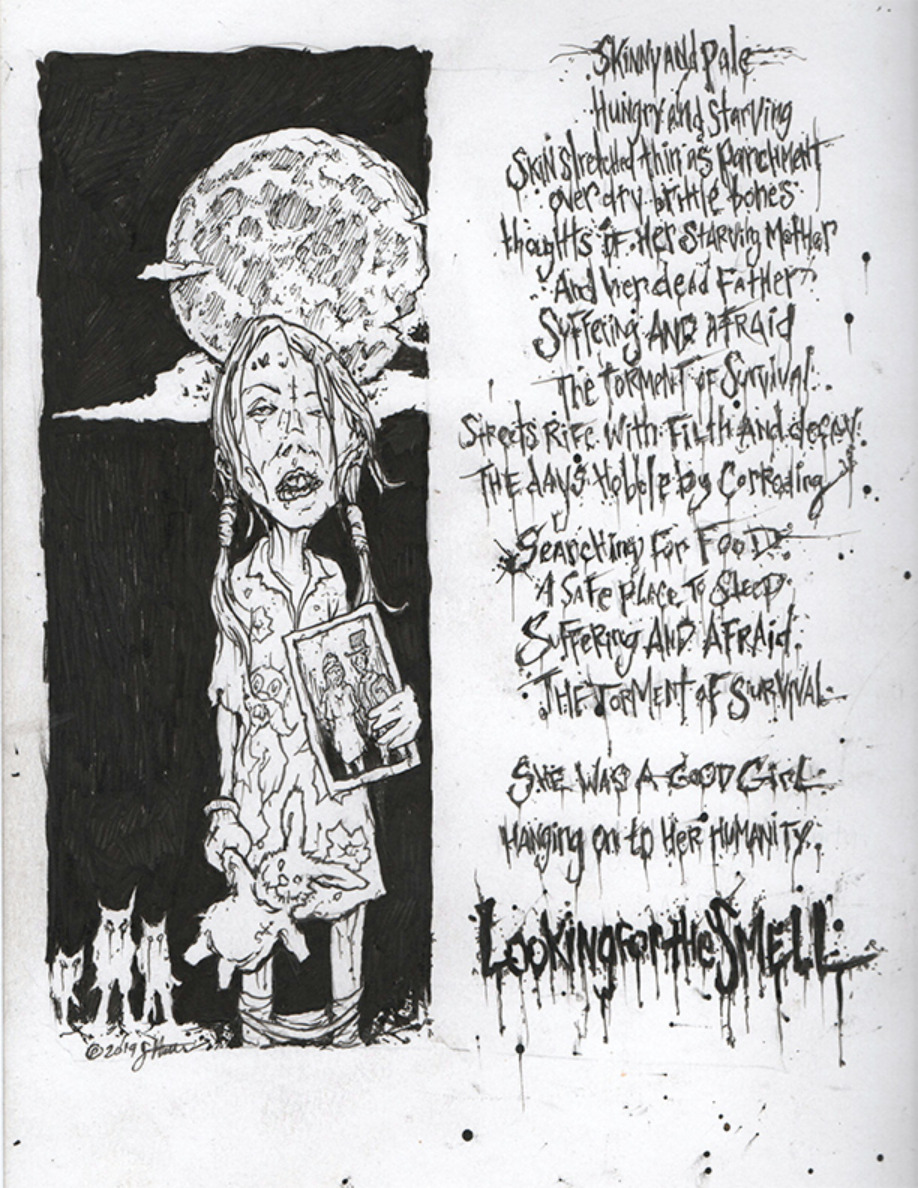 Skinny and Pale
Hungry and Starving
Skin stretched thin as Parchment
over dry brittle bones
thoughts of Her Starving Mother
And her dead Father
Suffering AND AFRAID
The TORMENT of Survival
Streets Rife With Filth And decay
THE days Hobble by Corroding
Searching for FOOD
A Safe PLACE To Sleep
Suffering AND AFRAID
THE TORMENT of SURVIVAL
SHE WAS A GOOD GIRL
HANGING on to HER HUMANITY
LOOKING for the SMELL
©2019